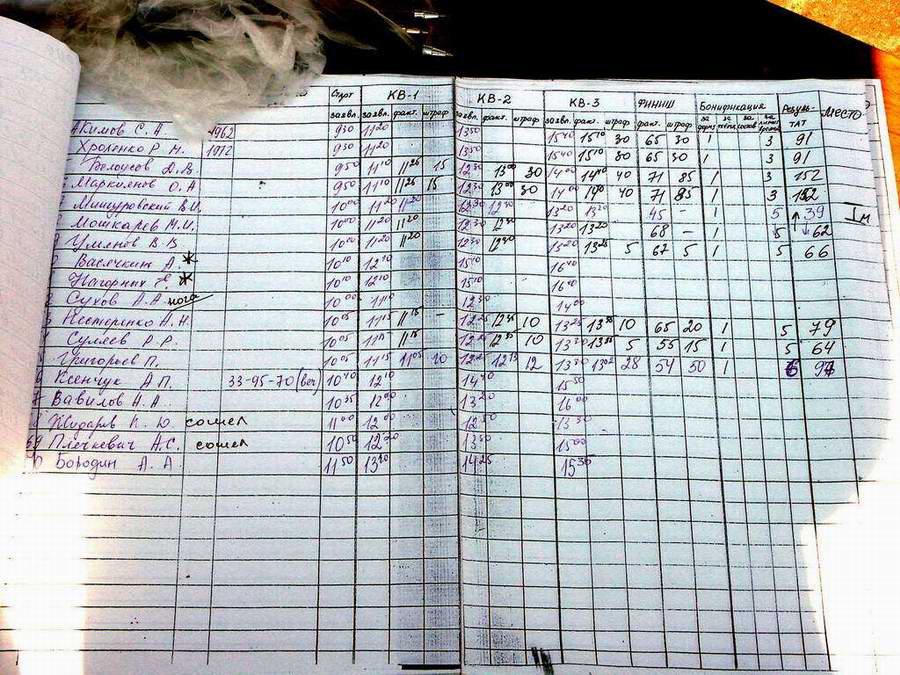 Старт КВ-1 КВ-2 КВ-3 ФИНИШ Бонификация Резуль-ТАТ МЕСТО
заявл. заявл. факт. штраф заявл. факт. штраф заявл. факт. штраф факт. штраф за за за за
Акимов С. А. 1962 9³⁰ 11²⁰ 13⁵⁰ 15⁴⁰ 15¹⁰ 30 65 30 1 3 91
Хроленко Р. Н. 1972 9³⁰ 11²⁰ 13⁵⁰ 15⁴⁰ 15¹⁰ 30 65 30 1 3 91
Белоусов Д.В. 9⁵⁰ 11¹⁰ 11²⁵ 15 12³⁰ 13⁰⁰ 30 14⁰⁰ 40 71 85 1 3 152
Маркиянов О. А 9⁵⁰ 11¹⁰ 11²⁵ 15 12³⁰ 13⁰⁰ 30 14⁰⁰ 40 71 85 1 3 152
Мишуровский В.И. 10⁰⁰ 11²⁰ 11²⁰ 12³⁰ 12³⁰ 13²⁰ 13²⁰ 45 – 1 5 39 I м
Мошкарев М.И. 10⁰⁰ 11²⁰ 11²⁰ 12³⁰ 12³⁰ 13²⁰ 13²⁰ 68 – 1 5 62
Умянов В.В 10⁰⁰ 11²⁰ 11²⁰ 12³⁰ 12³⁰ 13²⁰ 13²⁵ 5 67 5 1 5 66
Васячкин А. * 10¹⁰ 12¹⁰ 15¹⁰ 16⁴⁰
Нагорных * 10¹⁰ 12¹⁰ 15¹⁰ 16⁴⁰
Сухов А. А нога 10⁰⁰ 11¹⁰ 12³⁰ 14⁰⁰
Нестеренко А. Н. 10⁰⁵ 11¹⁵ 11¹⁵ – 12²⁵ 12³⁵ 10 13²⁵ 13³⁵ 10 65 20 1 5 79
Сулеев Р. Р. 10⁰⁵ 11¹⁵ 11¹⁵ 12³⁵ 10 13³⁵ 5 55 15 1 5 64
Григорьев П. 10⁰⁵ 11¹⁵ 11⁰⁵ 10 12¹³ 12 13³⁰ 13⁰² 28 54 50 1
Ксенчук А П. 33-95-70 (вет) 10⁴⁰ 12¹⁰ 14⁴⁰ 15⁵⁰
Вавилов А. А. 10³⁵ 12⁰⁰ 13²⁰ 16⁰⁰
Жидарев К. Ю. сошел 11⁰⁰ 12⁰⁰ 12⁵⁰ 13³⁰
Плечкевич А.С. сошел 10⁵⁰ 13⁵⁰ 15⁰⁰
Бородин А. А 11⁵⁰ 13¹⁰ 14²⁵ 15³⁵